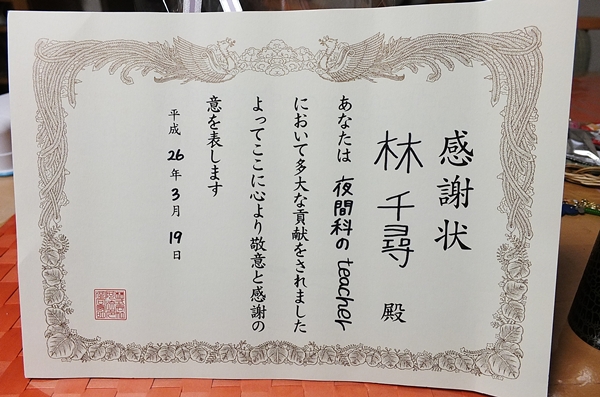 感謝状
林千尋 殿
あなたは 夜間科の teacher
において多大な貢献をされました
よってここに心より敬意と感謝の
意を表します
平成 26 年 3 月 19 日